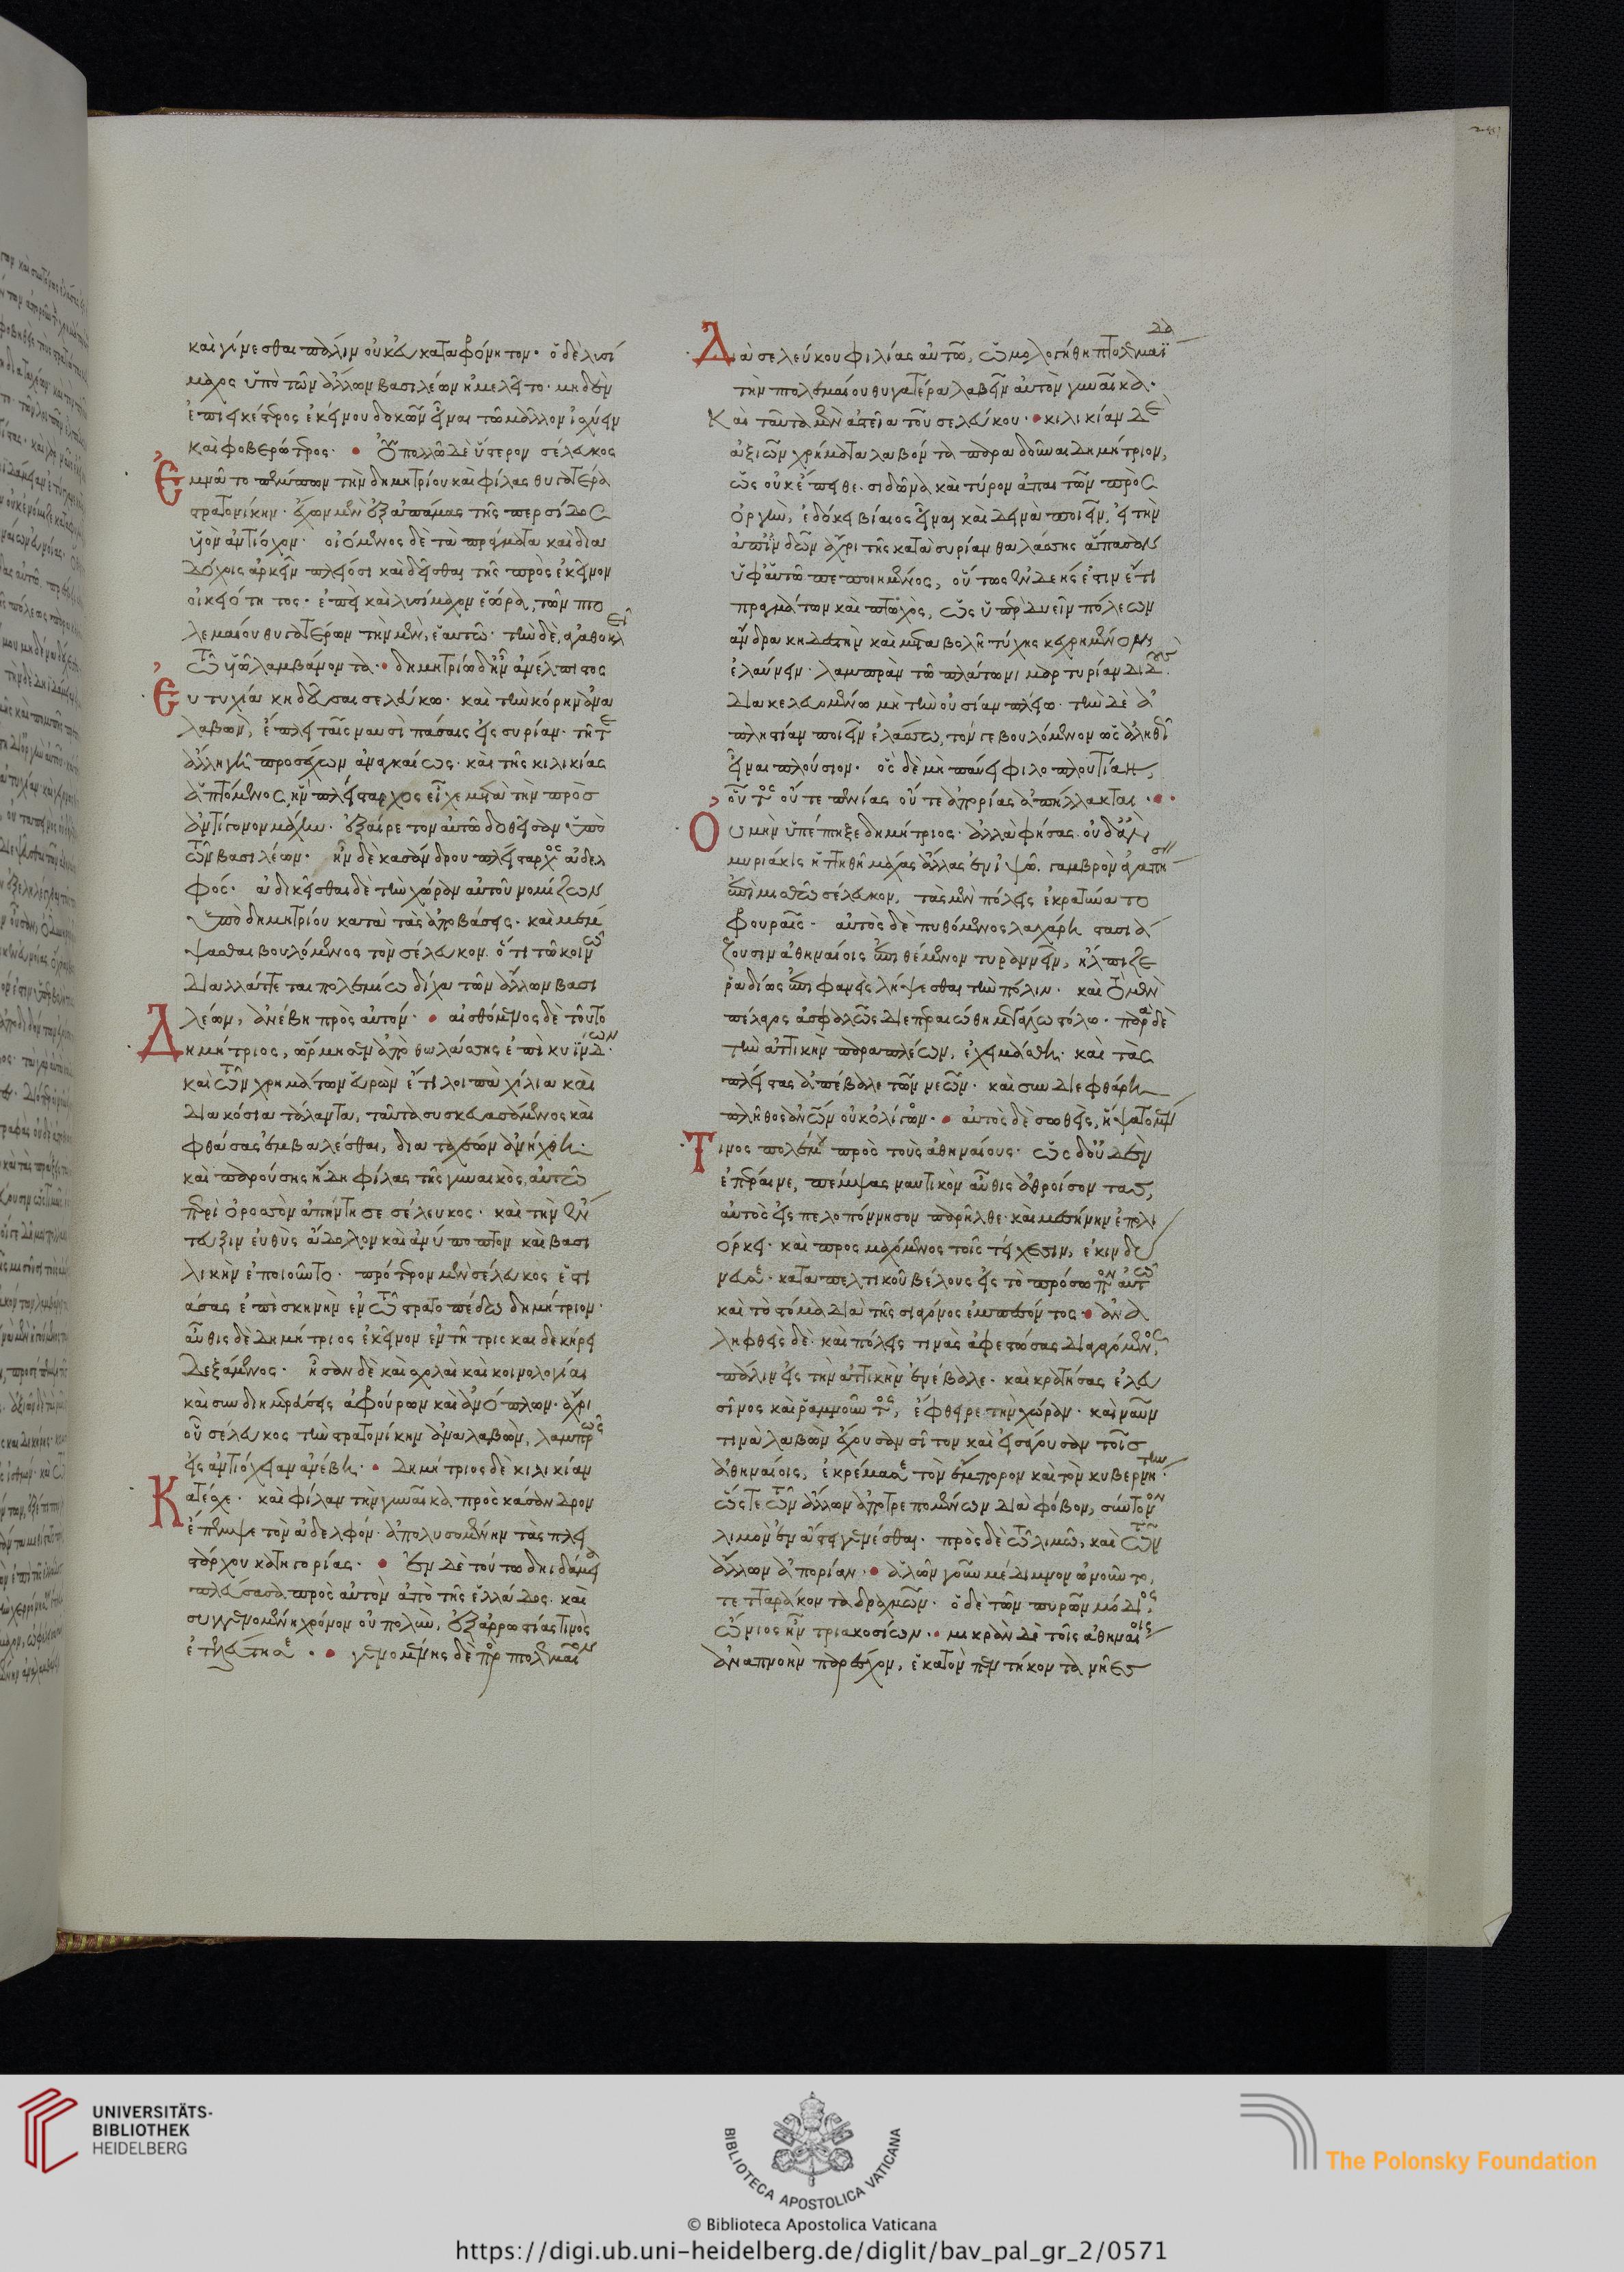 καὶ γίνεσθαι πάλιν οὐκ εὐκαταφρόνητον· ὁ δὲ λυσί
μαχος ὑπὸ τῶν ἄλλων βασιλέων ἠμελεῖτο· μηδὲν
ἐπιεικέστερος ἐκείνου δοκῶν εἶναι τῶ μᾶλλον ἰσχύειν
καὶ φοβερώτερος· οὐ πολλῶ δὲ ὕστερον σέλευκος
ἐμνᾶτο πέμπων τὴν δημητρίου καὶ φίλας θυγατέρα
στρατονίκην· ἔχων μὲν ἐξ ἀπάμας τῆς περσίδος
υἱὸν ἀντίοχον· οἰόμενος δὲ τὰ πράγματα καὶ δια
δόχοις ἀρκεῖν πλείοσι καὶ δεῖσθαι τῆς πρὸς ἐκεῖνον
οἰκειότητος· ἐπεὶ καὶ λυσίμαχον ἑώρα, τῶν πτο
λεμαίου θυγατέρων τὴν μὲν, ἑαυτῶ· τὴν δὲ, ἀγαθοκλεῖ
τῶ υἱῶ λαμβάνοντα· δημητρίω δὲ ἦν ἀνέλπιστος
εὐτυχία κηδεῦσαι σελεύκω· καὶ τὴν κόρην ἀνα
λαβὼν, ἔπλει ταῖς ναυσὶ πάσαις εἰς συρίαν· τῆ τε
ἄλλη γῆ προσέχων ἀναγκαίως· καὶ τῆς κιλικίας
ἁπτόμενος, ἣν πλείσταρχος εἶχε μετὰ τὴν πρὸς
ἀντίγονον μάχην· ἐξαίρετον αὐτῶ δοθεῖσαν ὑπὸ
τῶν βασιλέων· ἦν δὲ κασάνδρου πλείσταρχος ἀδελ
φός· ἀδικεῖσθαι δὲ τὴν χώραν αὐτοῦ νομίζων
ὑπὸ δημητρίου κατὰ τὰς ἀποβάσεις· καὶ μέμ
ψασθαι βουλόμενος τὸν σέλευκον. ὅτι τῶ κοινῶ
διαλλάττεται πολεμίω δίχα τῶν ἄλλων βασι
λέων, ἀνέβη πρὸς αὐτόν· αἰσθόμενος δὲ τοῦτο
δημήτριος, ὥρμησεν ἀπὸ θαλάσσης ἐπὶ κυΐνδων·
καὶ τῶν χρημάτων εὑρὼν ἔτι λοιπὰ χίλια καὶ
διακόσια τάλαντα, ταῦτα συσκευασάμενος καὶ
φθάσας ἐμβαλέσθαι, δια ταχέων ἀνήχθη·
καὶ παρούσης ἤδη φίλας τῆς γυναικὸς, αὐτῶ
περὶ ὀροσὸν ἀπήντησε σέλευκος· καὶ τὴν ἔν
τευξιν εὐθὺς ἄδολον καὶ ἀνύποπτον καὶ βασι
λικὴν ἐποιοῦντο· πρότερον μὲν σέλευκος ἑστι
άσας ἐπὶ σκηνὴν ἐν τῶ στρατοπέδω δημήτριον·
αὖθις δὲ δημήτριος ἐκεῖνον ἐν τῆ τρισκαιδεκήρει
δεξάμενος· ἦσαν δὲ καὶ σχολαὶ καὶ κοινολογίαι
καὶ συνδιημερεύσεις ἀφρούρων καὶ ἀνόπλων· ἄχρι
οὗ σέλευκος τὴν στρατονίκην ἀναλαβὼν, λαμπρῶς
εἰς ἀντιόχειαν ἀνέβη· δημήτριος δὲ κιλικίαν
κατέσχε· καὶ φίλαν τὴν γυναῖκα πρὸς κάσανδρον
ἔπεμψε τὸν ἀδελφόν· ἀπολυσομένην τὰς πλει
στάρχου κατηγορίας· ἐν δὲ τούτω δηιδάμεια
πλεύσασα πρὸς αὐτὸν ἀπὸ τῆς ἑλλάδος· καὶ
συγγενομένη χρόνον οὐ πολὺν, ἐξ ἀρρωστίας τινὸς
ἐτελεύτησε· γενομένης δὲ πρὸς πτολεμαῖον
Διὰ σελεύκου φιλίας αὐτῶ, ὡμολογήθη πτολεμαΐδα
τὴν πτολεμαίου θυγατέρα λαβεῖν αὐτὸν γυναῖκα·
Καὶ ταῦτα μὲν ἀστεῖα τοῦ σελεύκου· κιλικίαν δὲ
ἀξιῶν χρήματα λαβόντα παραδοῦναι δημήτριον,
ὡς οὐκ ἔπειθε. σιδῶνα καὶ τύρον ἀπαιτῶν πρὸς
ὀργὴν, ἐδόκει βίαιος εἶναι καὶ δεινὰ ποιεῖν, εἰ τὴν
ἀπ' ἰνδῶν ἄχρι τῆς κατὰ συρίαν θαλάσσης ἅπασαν
ὑφ' αὑτῶ πεποιημένος, οὕτως ἐνδεής ἐστιν ἔτι
πραγμάτων καὶ πτωχὸς, ὡς ὑπὲρ δυεῖν πόλεων
ἄνδρα κηδεστὴν καὶ μεταβολῆ τύχης κεχρημένον
ἐλαύνειν· λαμπρὰν τῶ πλάτωνι μαρτυρίαν διδοὺς
διακελευομένω μὴ τὴν οὐσίαν πλείω· τὴν δὲ ἀ
πληστίαν ποιεῖν ἐλάσσω, τόν γε βουλόμενον ὡς ἀληθῶς
εἶναι πλούσιον· ὡς ὁ δὲ μὴ παύει φιλοπλουτίαν,
οὗτος οὔτε πενίας οὔτε ἀπορίας ἀπήλλακται·
Οὐ μὴν ὑπέπτηξε δημήτριος· ἀλλὰ φήσας. οὐδ' ἂν
μυριάκις ἡττηθῆ μάχας ἄλλας ἐν ἰψῶ. γαμβρὸν ἀγαπήσειν
ἐπὶ μισθῶ σέλευκον, τὰς μὲν πόλεις ἐκρατύνατο
φρουραῖς· αὐτὸς δὲ πυθόμενος λαχάρη στασιά
ζουσιν ἀθηναίοις ἐπιθέμενον τυραννεῖν, ἤλπιζε
ῥᾳδίως ἐπιφανεὶς λήψεσθαι τὴν πόλιν· καὶ τὸ μὲν
πέλαγος ἀσφαλῶς διεπεραιώθη μεγάλω στόλω· παρὰ δὲ
τὴν ἀττικὴν παραπλέων, ἐχειμάσθη· καὶ τὰς
πλείστας ἀπέβαλε τῶν νεῶν· καὶ συνδιεφθάρη
πλῆθος ἀνθρώπων οὐκ ὀλίγον· αὐτὸς δὲ σωθεὶς, ἥψατο μέν
τινος πολέμου πρὸς τοὺς ἀθηναίους· ὡς δ' οὐδὲν
ἐπέραινε, πέμψας ναυτικὸν αὖθις ἀθροίσοντας,
αὐτὸς εἰς πελοπόννησον παρῆλθε· καὶ μεσήνην ἐπολι
όρκει· καὶ προσμαχόμενος τοῖς τείχεσιν, ἐκινδύ
νευσε· καταπελτικοῦ βέλους εἰς τὸ πρόσωπον αὐτῶ
καὶ τὸ στόμα διὰ τῆς σιαγόνος ἐμπεσόντος· ἀνα
ληφθεὶς δὲ καὶ πόλεις τινὰς ἀφεστώσας προσαγαγόμενος,
πάλιν εἰς τὴν ἀττικὴν ἐνέβαλε· καὶ κρατήσας ἐλευ
σῖνος καὶ ῥαμνοῦντος, ἔφθειρε τὴν χώραν· καὶ ναῦν
τινα λαβὼν ἔχουσαν σῖτον καὶ εἰσάγουσαν τοῖς
ἀθηναίοις, ἐκρέμασε τὸν ἔμπορον καὶ τὸν κυβερνήτην·
ὥστε τῶν ἄλλων ἀποτρεπομένων διὰ φόβον, σύντονον
λιμὸν ἐν ἄστει γενέσθαι· πρὸς δὲ τῶ λιμῶ, καὶ τῶν
ἄλλων ἀπορίαν· ἁλῶν γοῦν μέδιμνον ὠνοῦντο,
τετταράκοντα δραχμῶν· ὁ δὲ τῶν πυρῶν μόδιος,
ὤνιος ἦν τριακοσίων· μικρὰν δὲ τοῖς ἀθηναίοις
ἀναπνοὴν παρέσχον, ἑκατὸν πεντήκοντα νῆες
UNIVERSITÄTS-
BIBLIOTHEK
HEIDELBERG
BIBLIOTECA APOSTOLICA VATICANA
The Polonsky Foundation
© Biblioteca Apostolica Vaticana
https://digi.ub.uni-heidelberg.de/diglit/bav_pal_gr_2/0571